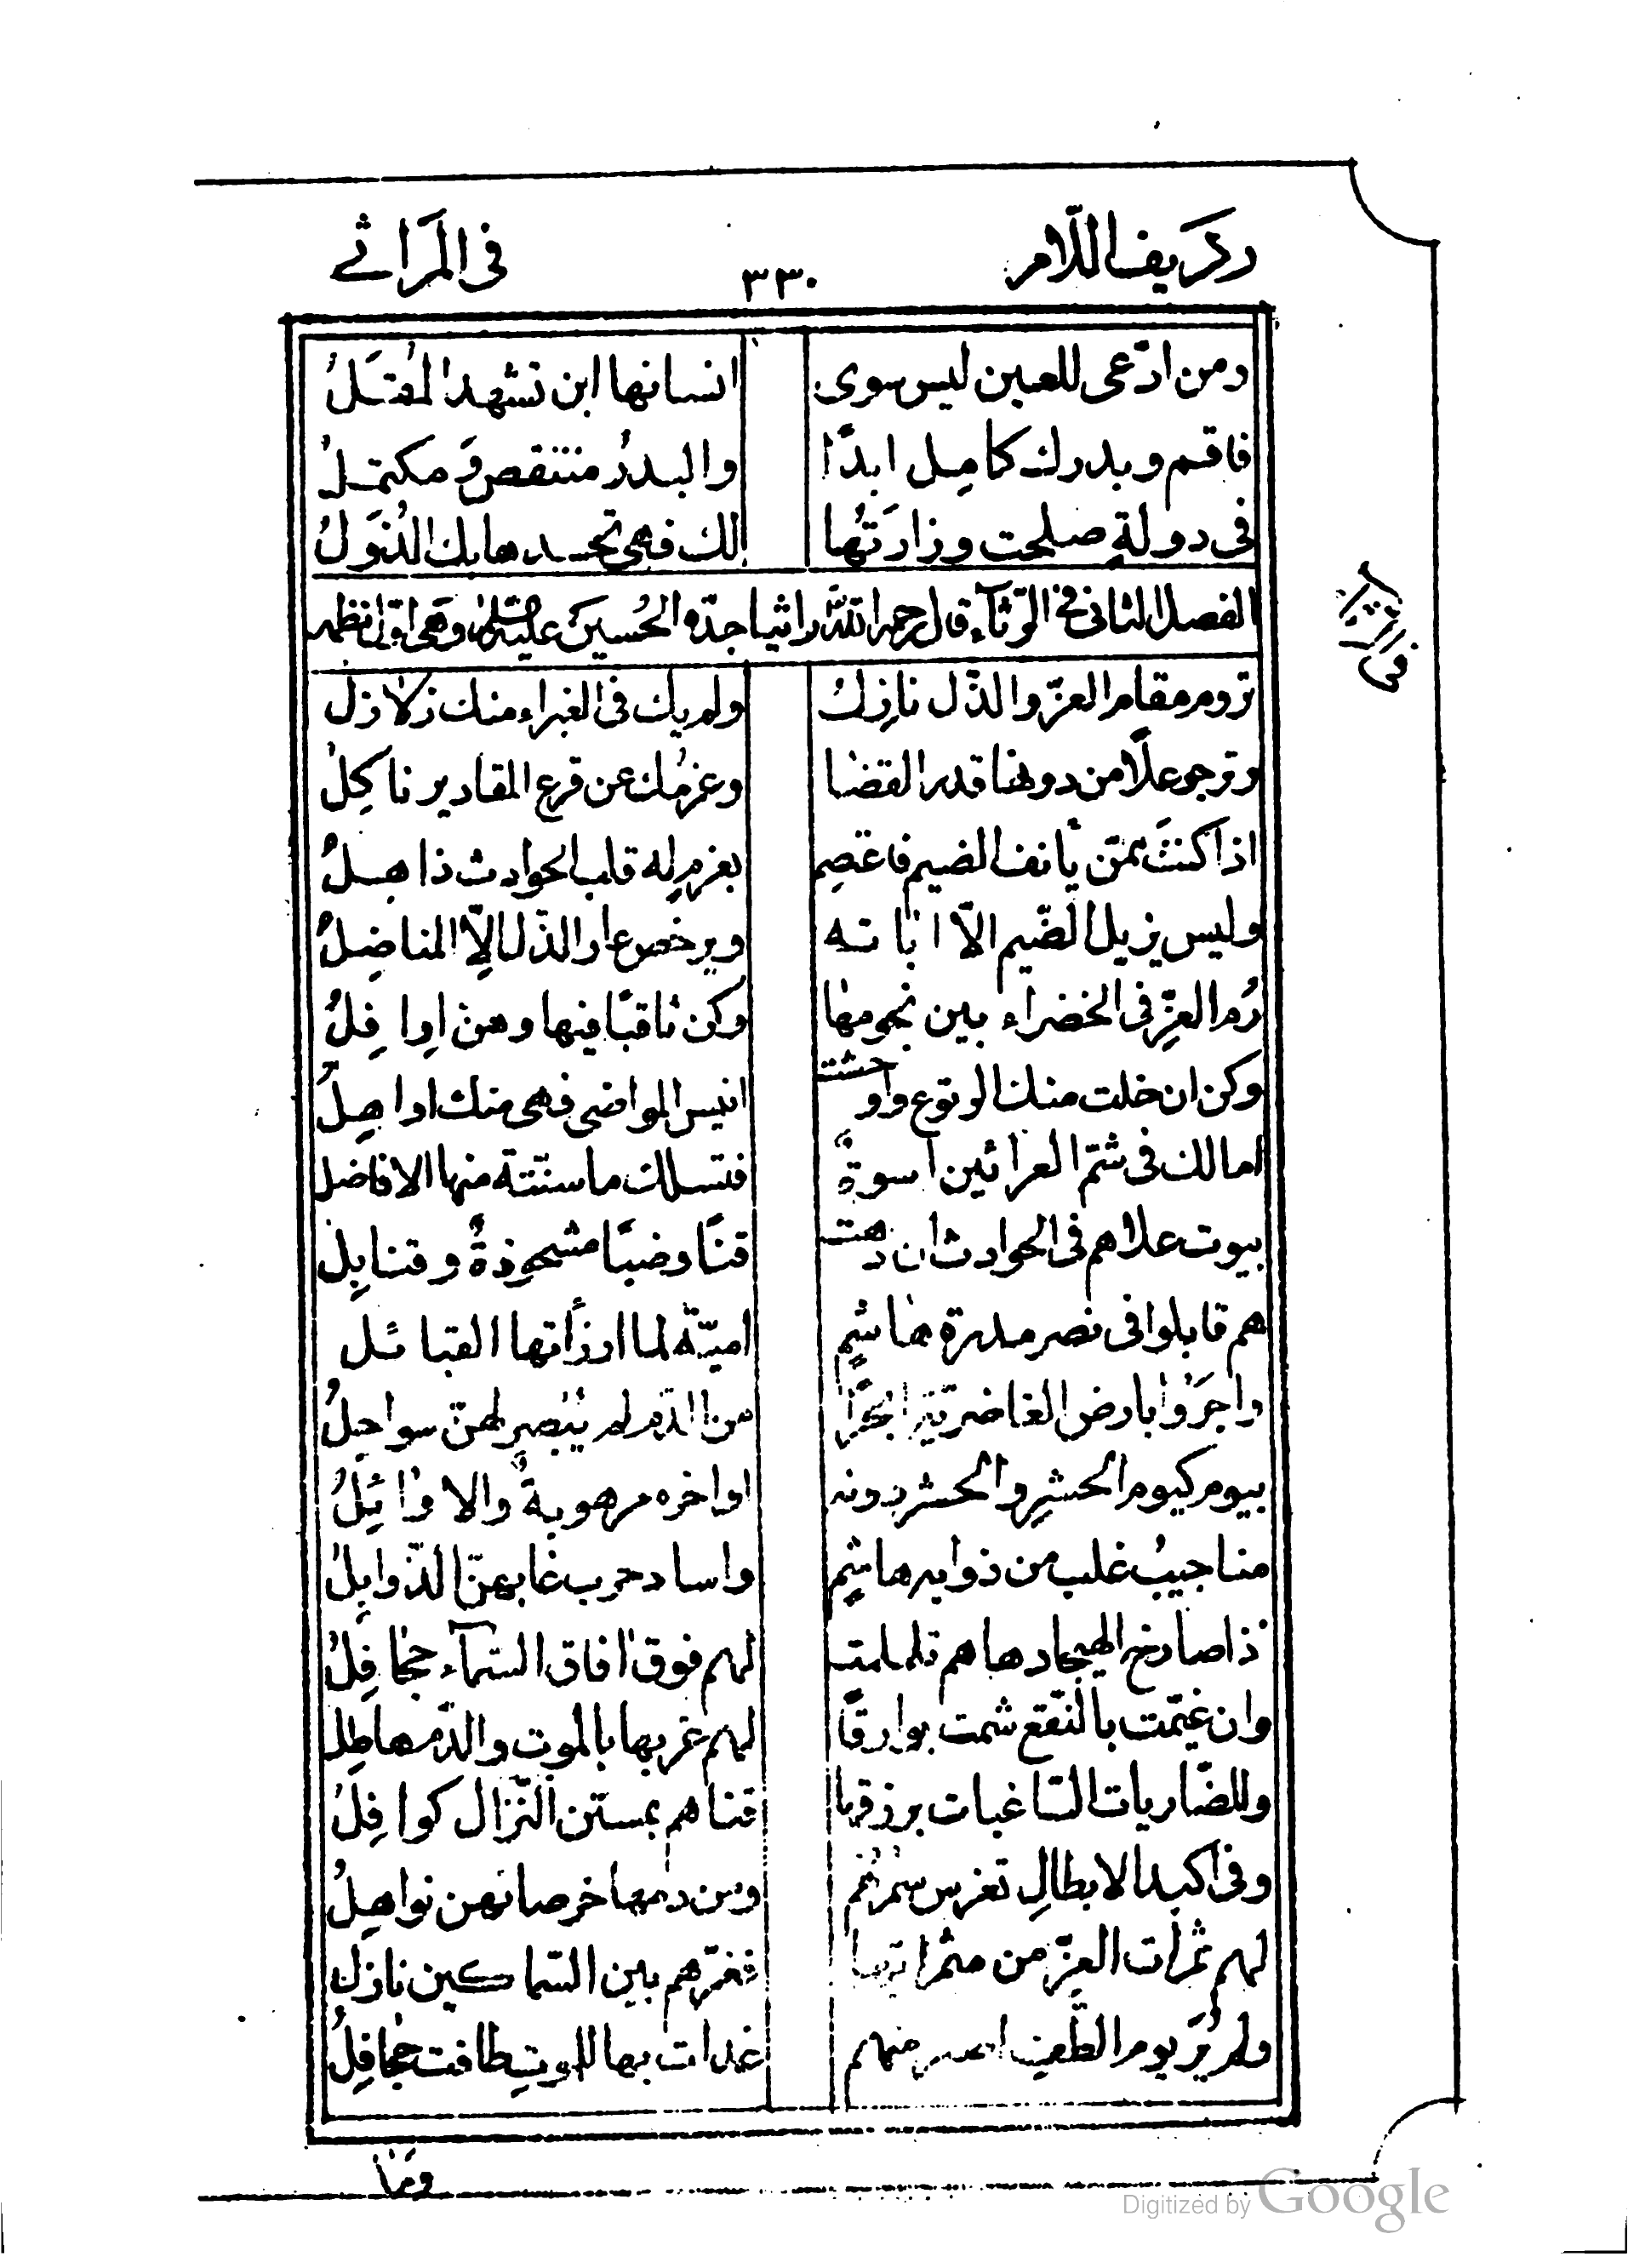 رديف اللّام ٣٣٠ فى المَراثے
ومن ادّعى للعين ليس سوى انسانها اين تشهد المُقَلُ
فاقم وبدرك كامِل ابدًا والبدرُ منتقص وَمكتملُ
فى دولةٍ صلحت وزارَتُها لك فهى تحسدها بك الدُوَلُ
الفصل الثانى فى الرّثآء قال رحمه الله راثيا جدّه الحُسين عليه السّلام وهى اوّل نظمه
فى الرثاء
تروم مقام العزّ والذّل نازِلُ ولم يك فى الغبراء منك زلازلُ
وترجو علًا من دونها قدر القضا وعزمُك عن قرع المقادير ناكِلُ
اذا كنتَ ممّن يأنف الضيم فاعتصِم بعزمٍ له قلب الحوادث ذاهلُ
وليس يزيل الضّيم الّا اباته ويرخص عار الذّل الِاّ المناضِلُ
رُم العزّ فى الخضراء بين نجومها وكن ثاقبًا فيها وهنّ اوافِلُ
وكن ان خلت منك الربوع واوحشت انيس المواضى فهى منك اواهِلُ
امالك فى شمّ العرانين اسوةٌ فتسلك ما سنّته منها الافاضل
بيوت علاهم فى الحوادث ان دهت قنًا وضبًا مشحوذةٌ وقنابِلُ
هم قابلوا فى نصر مدرة هاشمٍ اميّة لما ارزأتها القبائل
واجرَوْا بارض الغاضريّة ابحُرًا من الدّم لم يُبصر لهنّ سواحِلُ
بيوم كيوم الحشرِ والحشر دونه اواخره مرهوبةٌ والاوائِلُ
مناجيبُ غلب من ذوابه هاشمٍ واساد حرب غابهنّ الذّوابِلُ
ذا صارخ الهيجا دهاهم تلملمت لهم فوق افاق السّمآء جحافِلُ
وان غيّمت بالنّقع شمت بوارقًا لهم غربها بالموت والدّم هاطِلُ
وللضّاريات السّاغبات برزقها قناهم بمستن النّزال كوافِلُ
وفى اكبد الابطالِ تغرس سُمرُهُم ومن دمها خرصانهن نواهِلُ
لهم ثمرات العِزّ من مثمراتها فعزّهم بين السّماكين نازل
ولم يُرَ يوم الطّعن اصبر منهم غداة بها للموت طافت جحافِلُ
ومَا
Digitized by Google